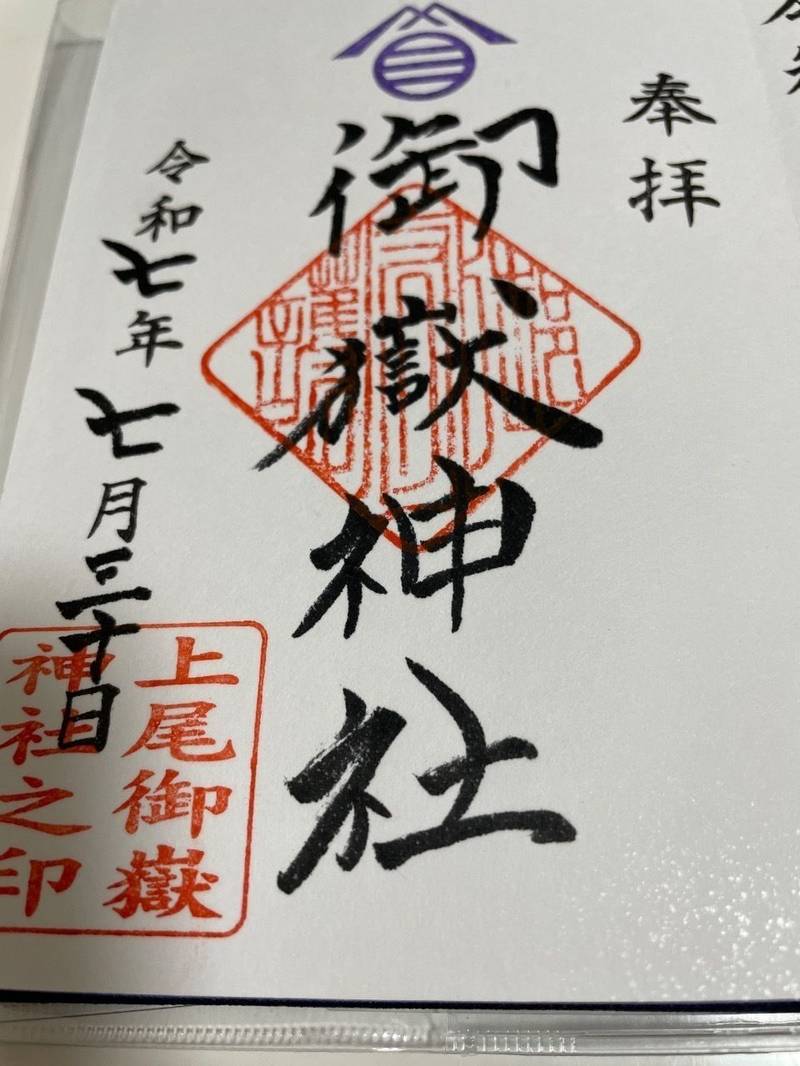 奉拝
御嶽神社
令和七年七月三十日
上尾御嶽
神社之印